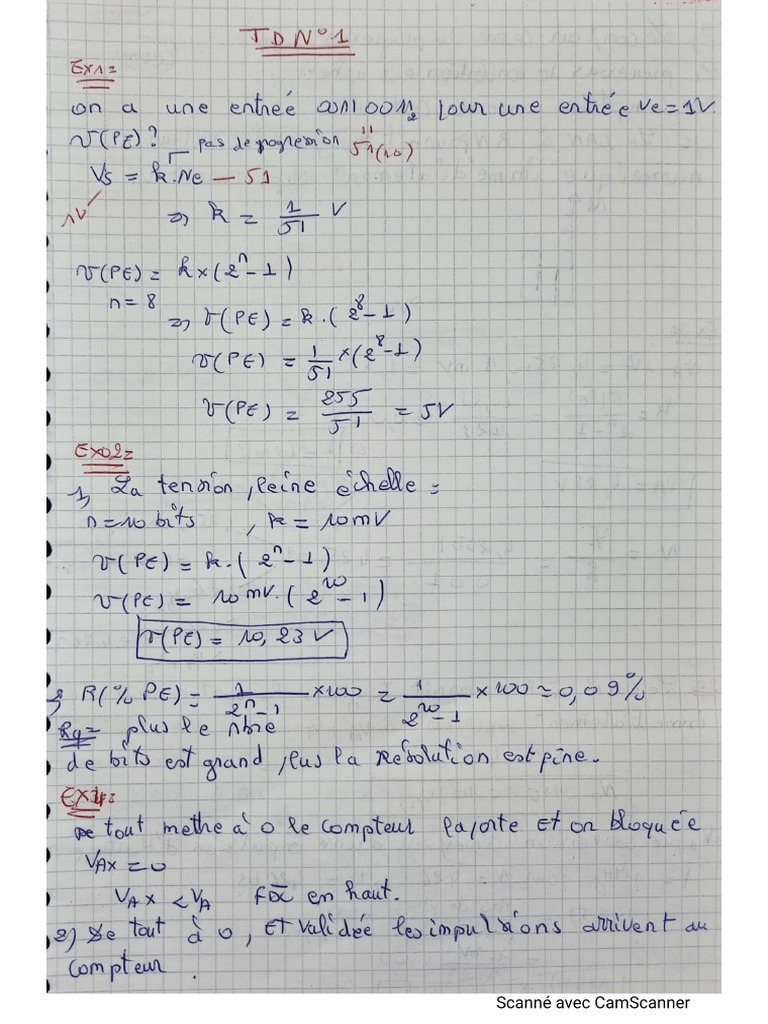 TD N°1
Ex1=
on a une entreé 00110011₂ pour une entrée Ve=1V.
V(PE)? pas de progression " 51(10)
Vs = k.Ne — 51
1V
=> k = 1/51 V
V(PE) = k×(2ⁿ-1)
n=8
=> V(PE) = k.(2⁸-1)
V(PE) = 1/51 ×(2⁸-1)
V(PE) = 255/51 = 5V
Ex02=
1) La tension pleine échelle =
n=10 bits , k = 10mV
V(PE) = k.(2ⁿ-1)
V(PE) = 10mV.(2¹⁰-1)
V(PE) = 10,23 V
R(% PE) = 1/(2ⁿ-1) ×100 = 1/(2¹⁰-1) ×100 = 0,09%
Rq= plus le nbre
de bits est grand plus la Résolution est fine.
tout methe à 0 le compteur la porte Et on bloqueé
VAX = 0
VAX < VA en haut.
2) De tout à 0, Et validée les impulsions arrivent au
compteur.
Scanné avec CamScanner